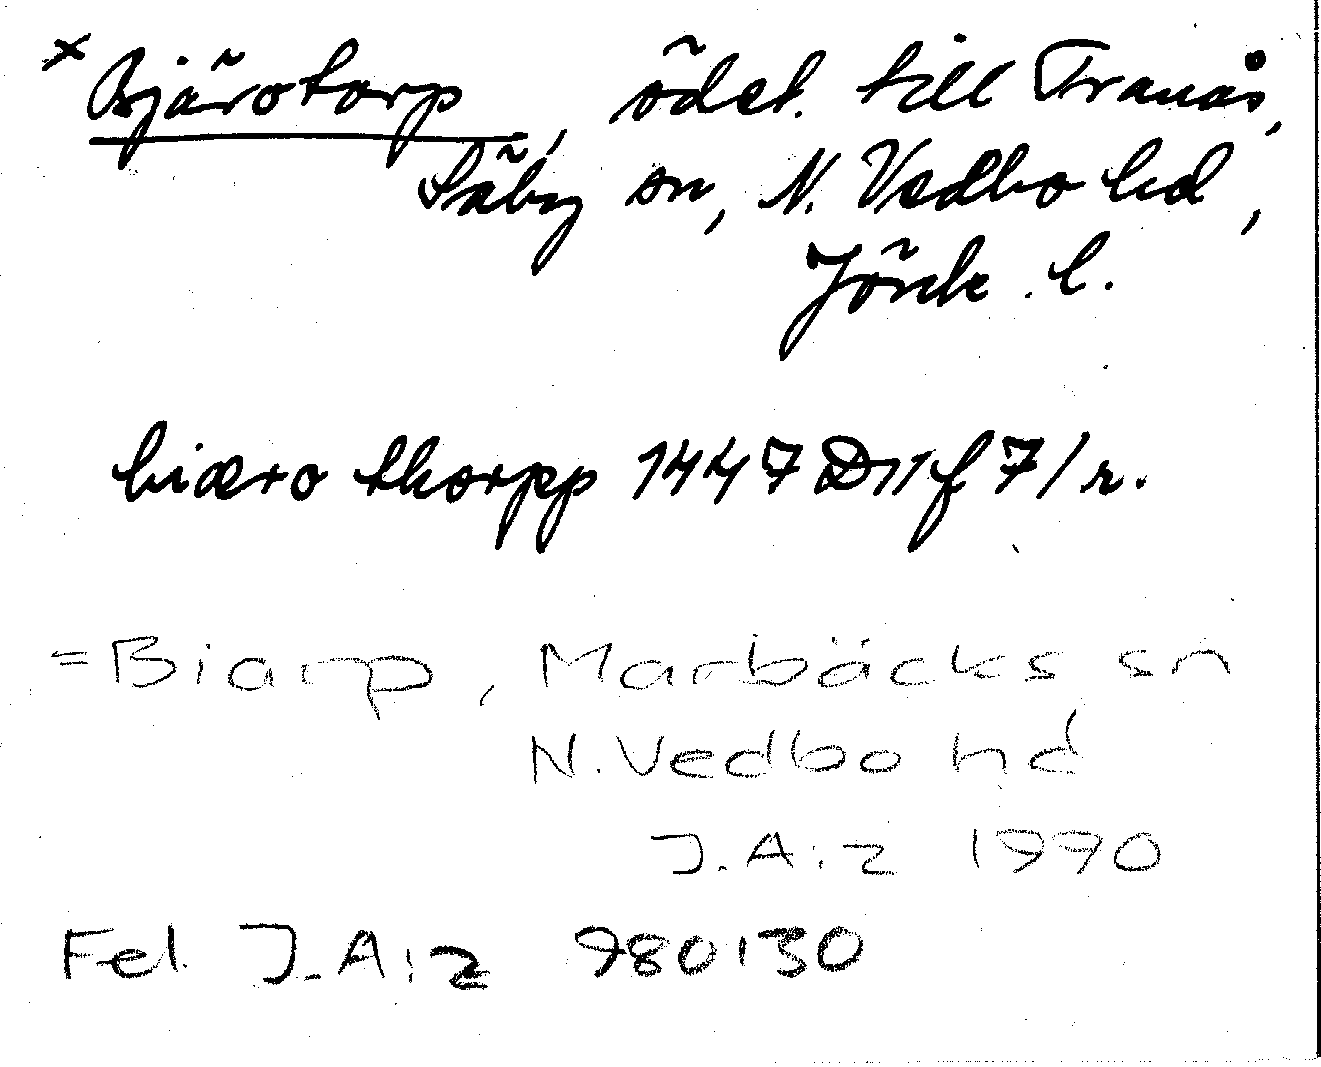 × Bjärotorp, ödet. till Tranås,
Säby sn, N. Vedbo hd,
Jönk. l.
biæro thorpp 1447 D11 f 7/r.
= Biarp, Marbäcks sn
N. Vedbo hd
J.A:z 1990
Fel. J.A:z 980130